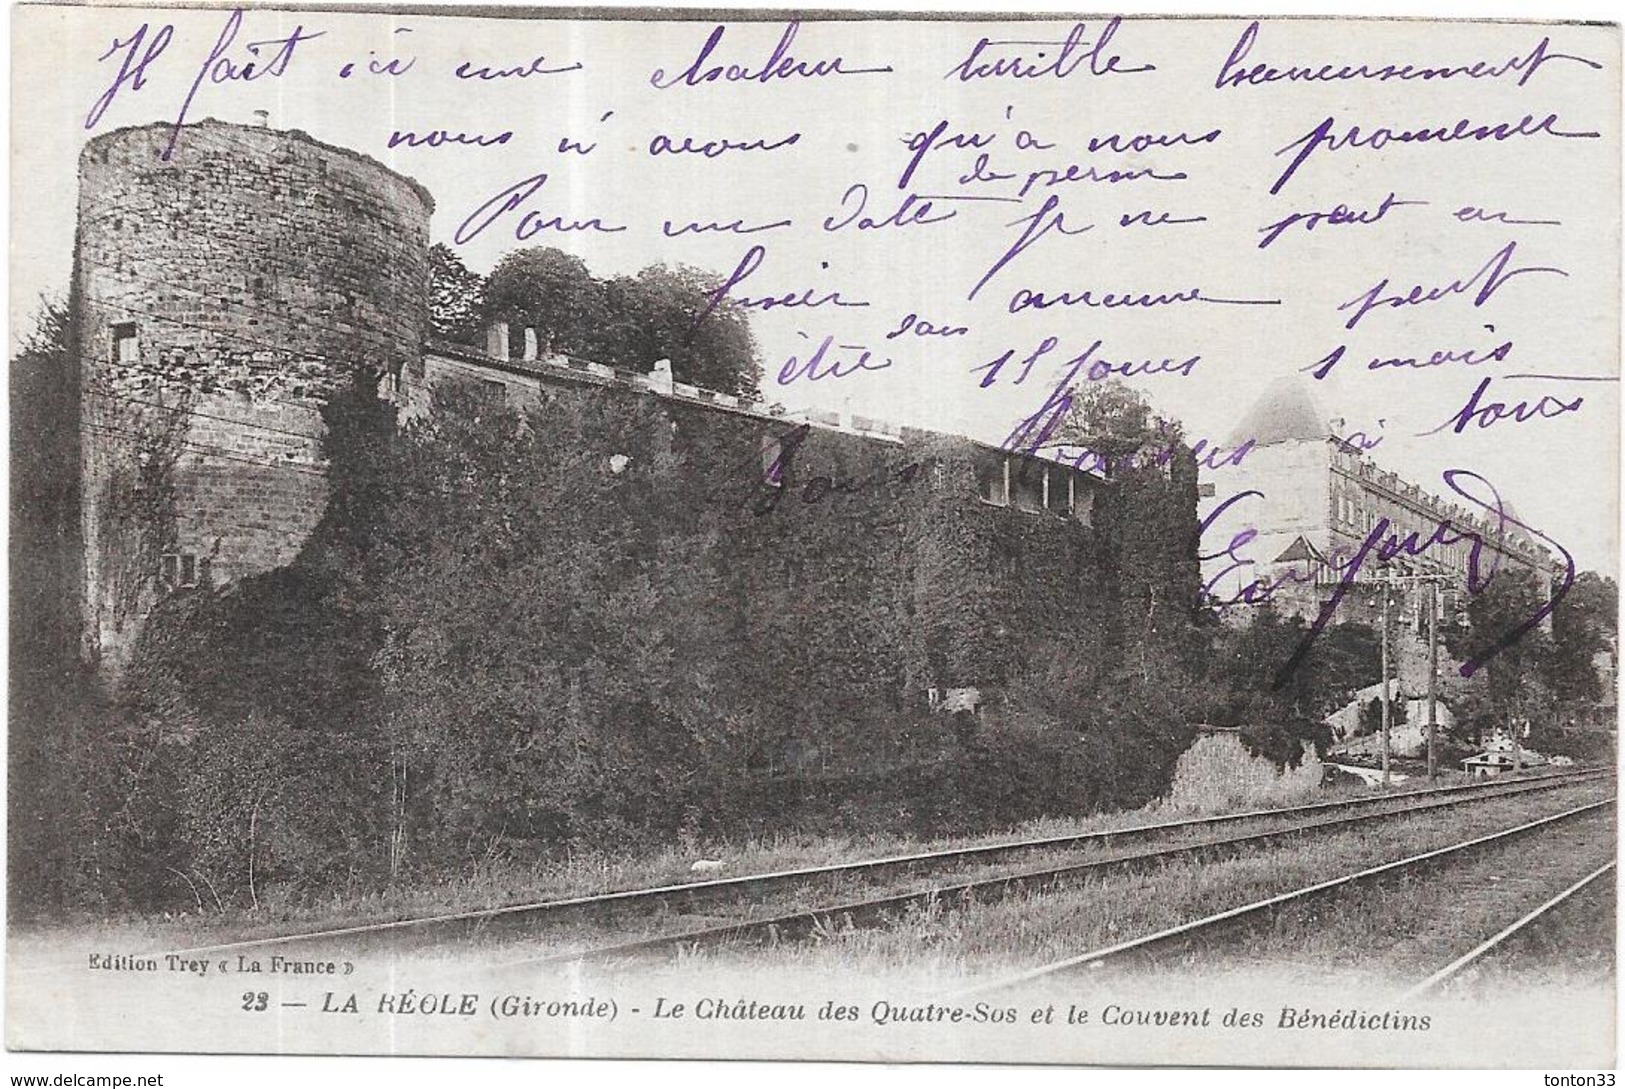 Il fait ici une chaleur terrible heureusement
nous n'avons qu'à nous promener
de perm
Pour une date je ne peut en
fixer aucune peut
être dans 15 jours 1 mois
Bons baisers à tous
Edition Trey « La France »
23 — LA RÉOLE (Gironde) - Le Château des Quatre-Sos et le Couvent des Bénédictins
delcampe.net
tonton33